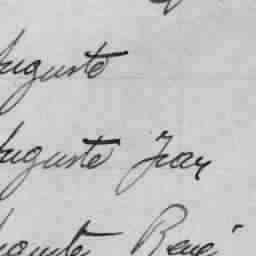 Auguste
Auguste Jean
René